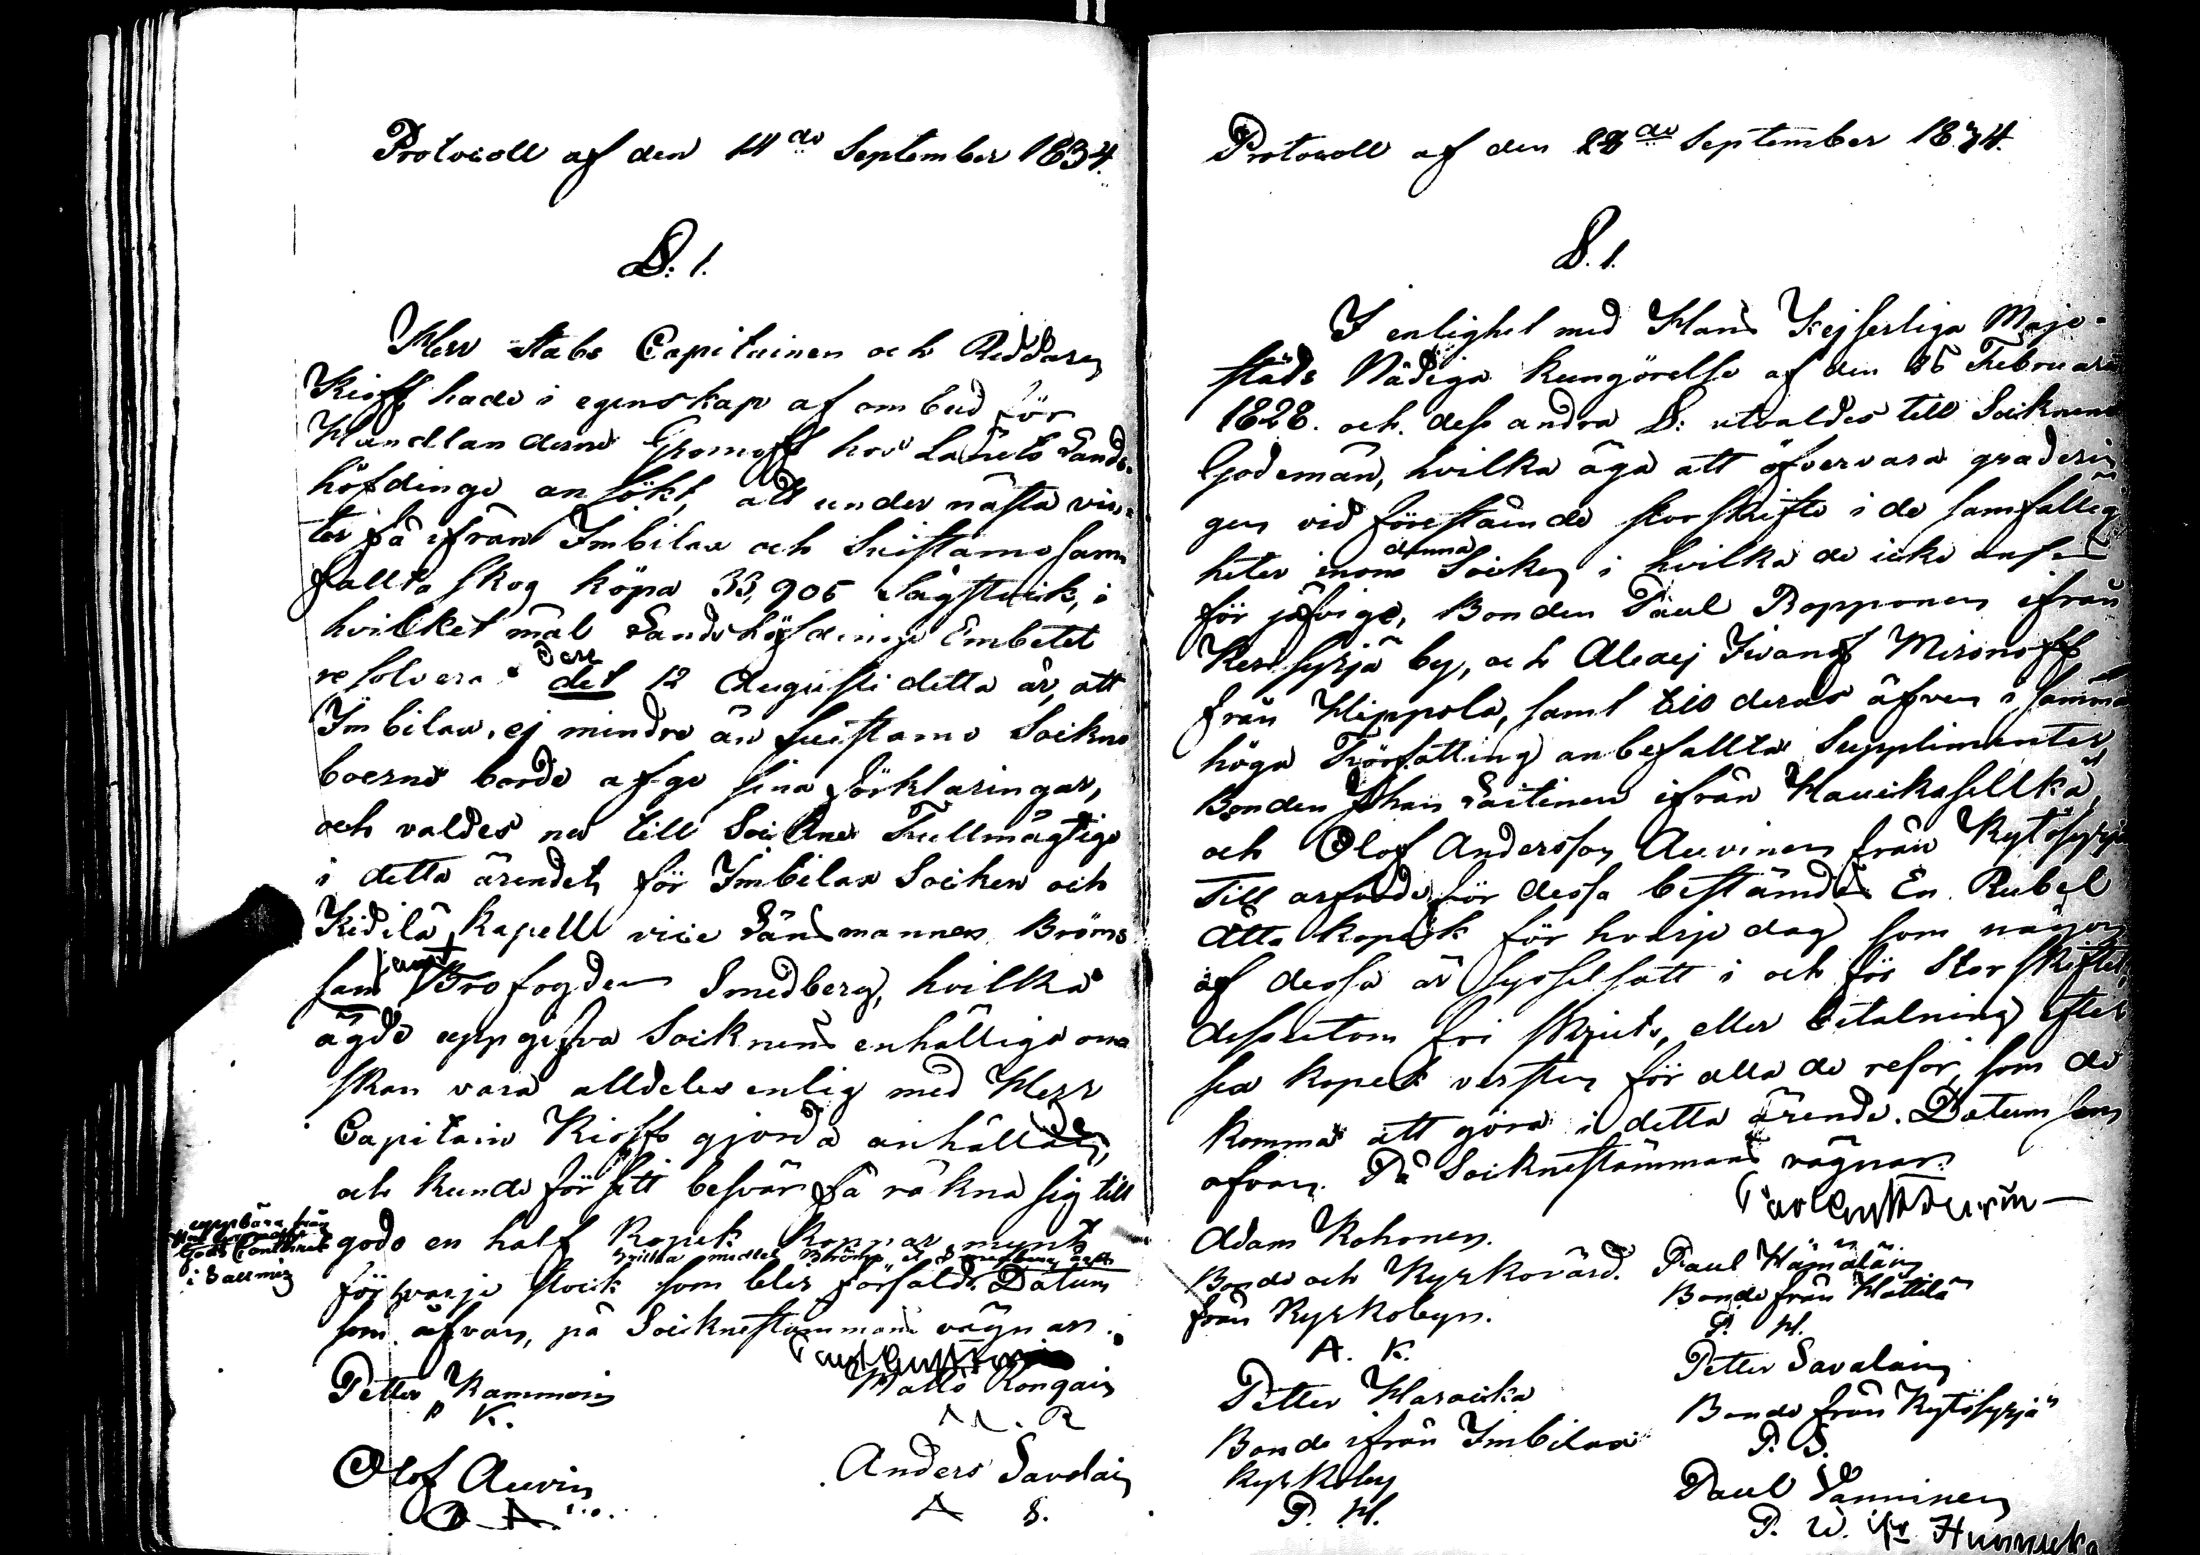 Protocoll af den 14de September 1834.
§. 1.
Herr Stabs Capitainen och Riddaren
Kioff hade i egenskap af ombud för
Handlanderne Gromoff hos Länets Lands-
höfdinge ansökt, att under nästa vin-
ter få ifrån Imbilax och Suistamo sam-
fällta skog köpa 33,905 Sågstock, i
hvilket mål Landshöfdinge Embetet
resolverat den det 12 Augusti detta år, att
Imbilax, ej mindre än Suistamo Sockne
boerne borde afge sina förklaringar,
och valdes nu till Sockne Fullmägtige
i detta ärendet, för Imbilax Socken och
Kidilä Kapell vice Länsmannen Bröms
sam samt Brofogden Smedberg, hvilka
ägde uppgifva Socknens enhälliga ön-
skan vara alldeles enlig med Herr
Capitain Kioffs gjorda anhållan,
och kunde för sitt besvär få räkna sig till
godo en half Kopek Koppar mynt
hvilka medel Bröms och Smedberg sjelfve
uppbära från
Gods Contoiret
i Salmis
för hvarje stock som blir försåld. Datum
som ofvan, på Socknestämmans vägnar.
Petter Kammoin
P. K.
Matts Rongain
M. R
Olof Auvin
O. A.
Anders Savolain
A S.
Protocoll af den 28de September 1834.
§. 1.
I enlighet med Hans Kejserliga Maje-
stäts Nådiga Kungörelse af den 15 Februari
1828. och dess andra §: utvaldes till Socknens
Godemän, hvilka äga att öfvervara graderin-
gen vid förestående storskifte i de samfällig-
heter inom denna Socken i hvilka de icke anses
för jäfvige, Bonden Paul Ropponen ifrån
Kerisyrjä by, och Alexej Ivanoff Mironoff
från Hippola, samt till deras äfven i samma
höga Författning anbefallta Supplimenter,
Bonden Johan Laitinen ifrån Hauikaselkä,
och Olof Andersson Auvinen från Kytösyrjä
Till arfvode för dessa bestämdes En Rubel
åtta Kopek för hvarje dag som någon
af dessa är sysselsatt i och för Storskiftet,
dessutom fri skjuts, eller betalning efter
sex kopek versten för alla de resor, som de
komma att göra i detta ärende. Datum som
ofvan. På Socknestämmans vägnar.
Adam Kohonen.
Bonde och Kyrkovärd.
från Kyrkobyn.
A. K.
Paul Hämäläin
Bonde från Hättilä
P. H.
Petter Haraicka
Bonde ifrån Imbilax
Kyrkoby
P. H.
Petter Savolain
Bonde från Kytösyrjä
P. S.
Paul Vänninen
P. W. ifr Hunnuka